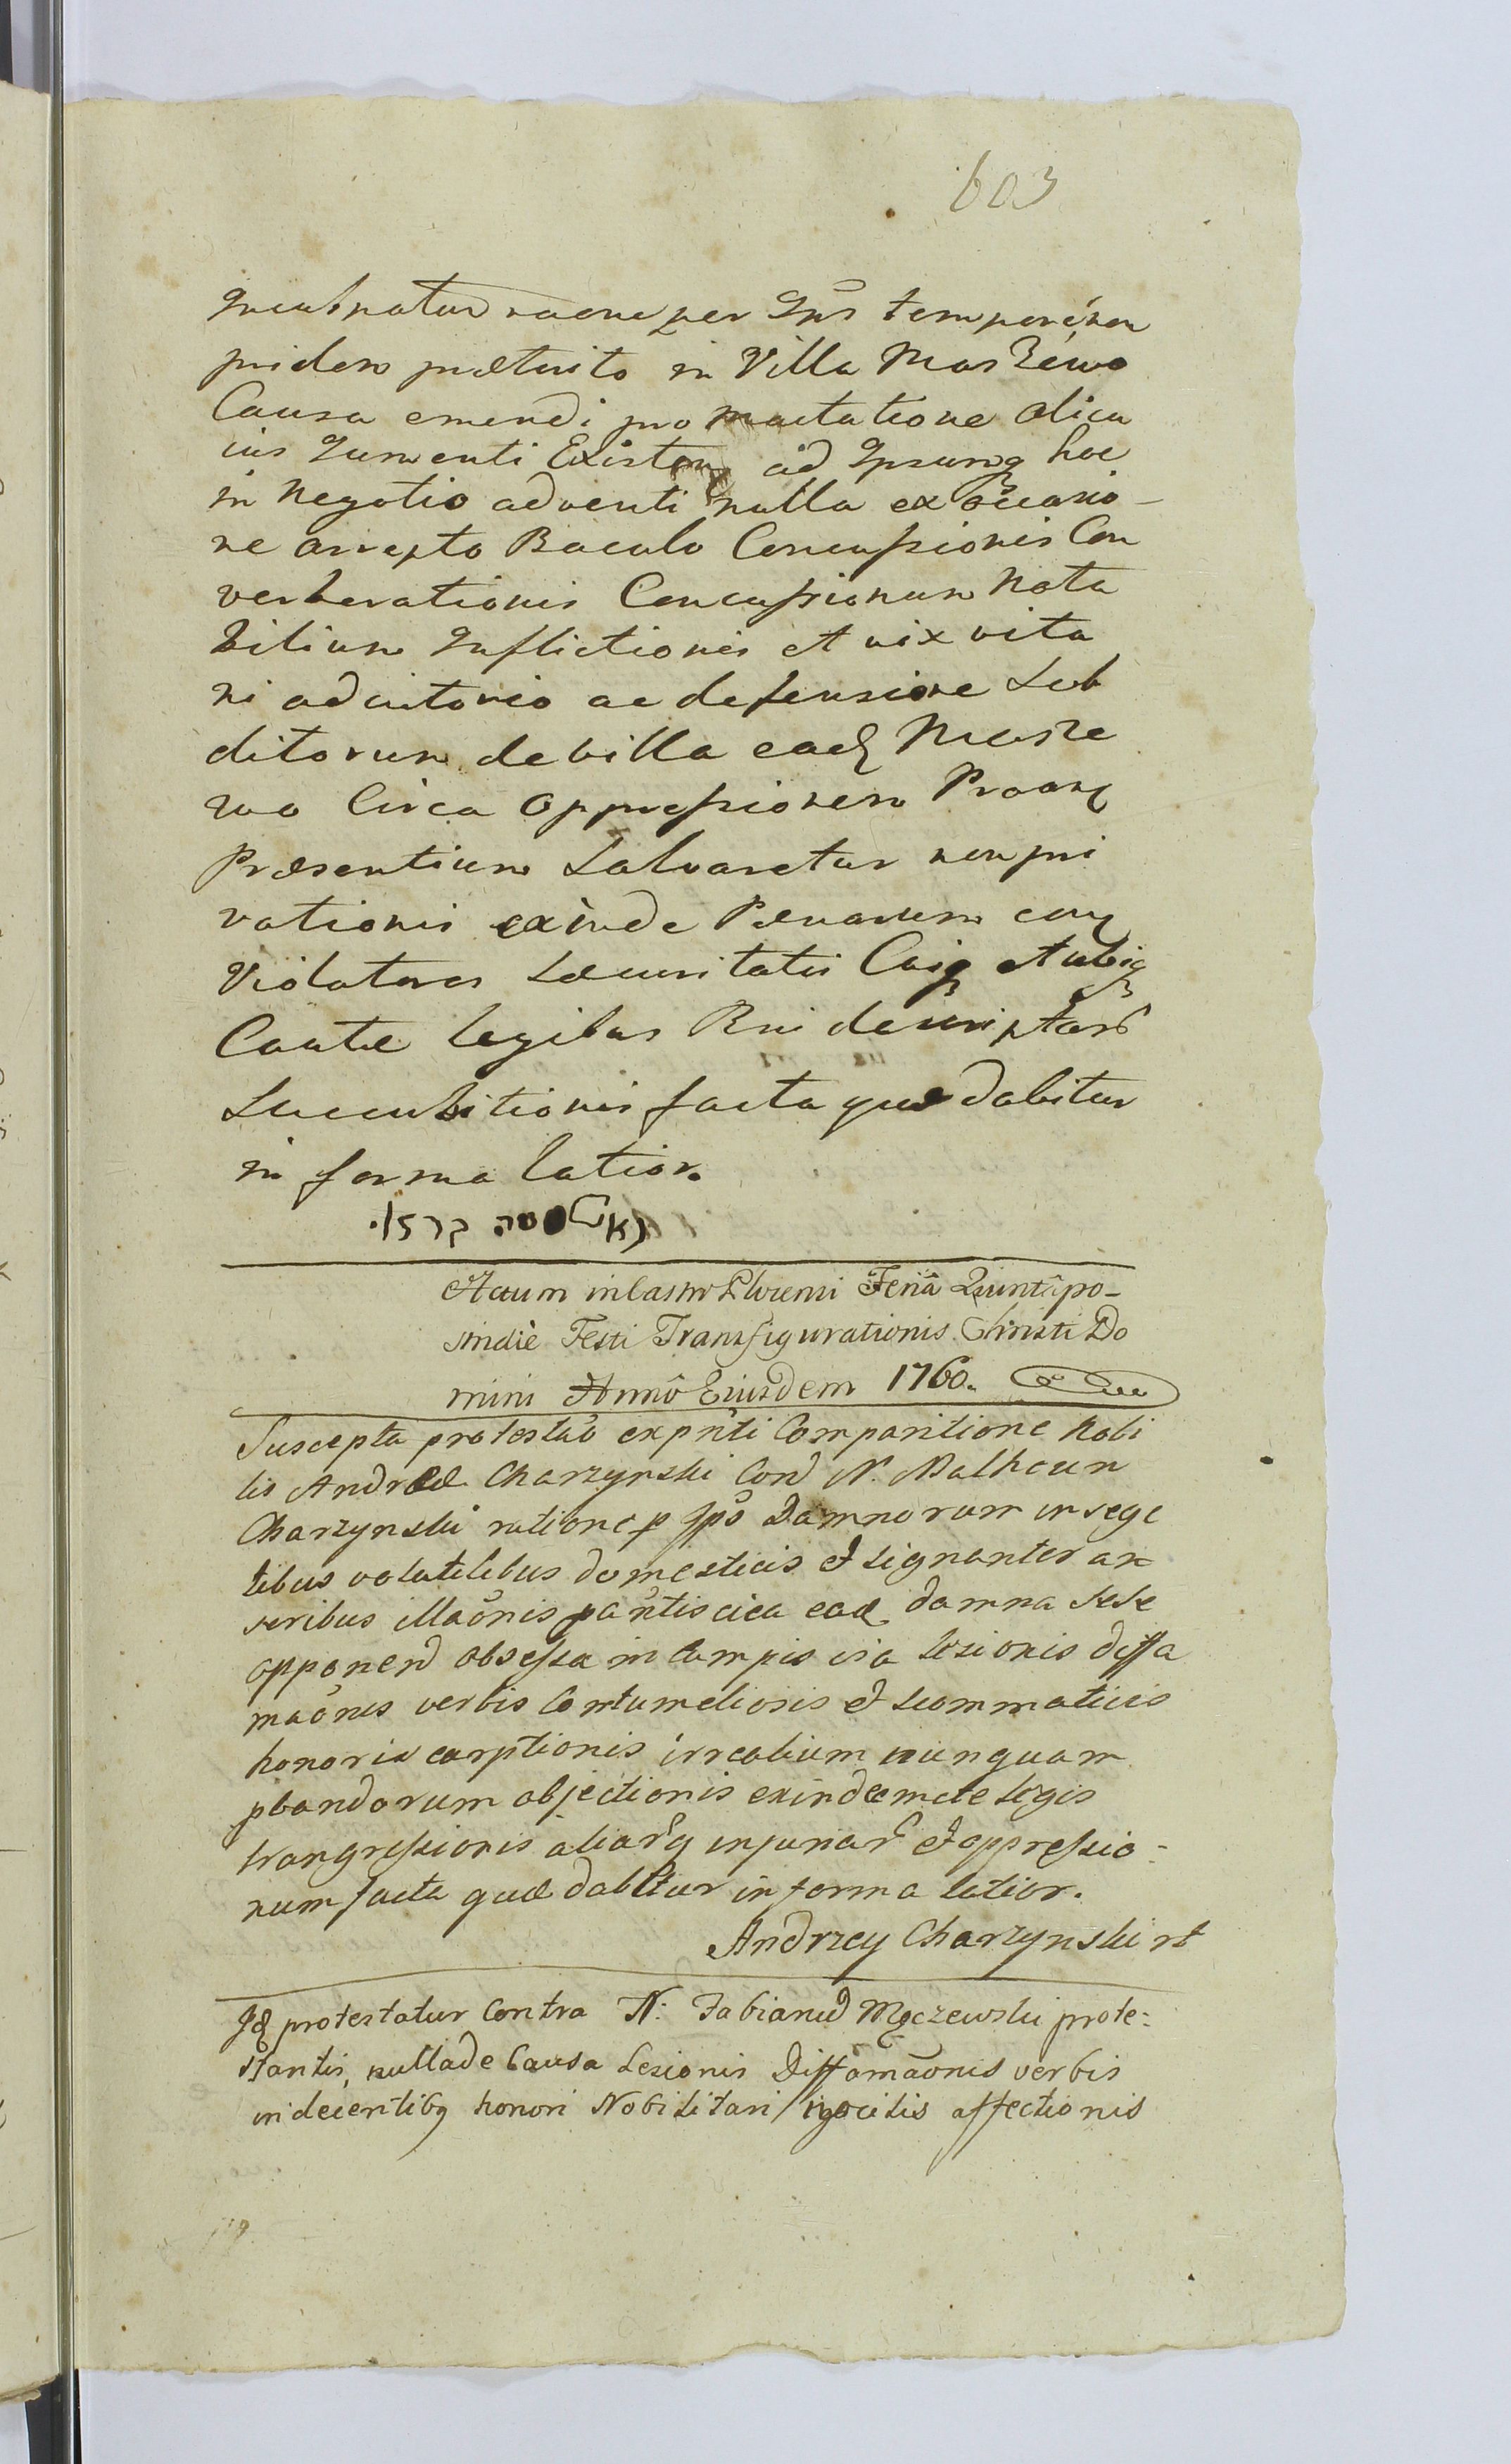 603
pridem præterito in Villa Maszewo
Causa emendi pro mactatione alicu
ius Jumenti Existen ad Ipsumq hoc
in Negotio adventi nulla ex occasio-
ne arrepto Baculo Concussionis Con
verberationis Concussionum Nota
bilium Inflictionis et vix vita
ni adiutorio ac defensione Sub
ditorum de villa ead Masze
wo Circa Oppressionem
Præsentium Salvaretur non pri
vationis exinde Pænarum con
Violatores Securitatis Cuiq et ubiq
Cautæ legibus Rni descriptar
Succubitionis facta quæ dabitur
in forma latior.
Actum in Castro Plocensi Feriâ Quintâ po-
stridie Festi Transfigurationis Christi Do
mini Annô Eiusdem 1760.
Suscepta protestaõ ex pñti Comparitione Nobi
lis Andreæ Charzynski Con N. Malheum
Charzynski ratione p Ips Damnorum in sege
tibus volatilibus domesticis et signanter an
seribus illaõnis pañtis cica ead damna sese
opponend obsessa in Campis via lesionis diffa
maõnis verbis Contumeliosis et scommaticis
honoris carptionis irrealium nunquam
pbandorum objectionis exinde mete legis
trangressionis aliarq injuriar et oppressio-
num facta quæ dabitur in forma latior.
Andrzey Charzynski
Id protestatur Contra N: Fabianũ Męczewski prote-
stantis, nulla de Causa Lesionis Diffamaõnis verbis
indecentibq honori Nobilitari affectionis